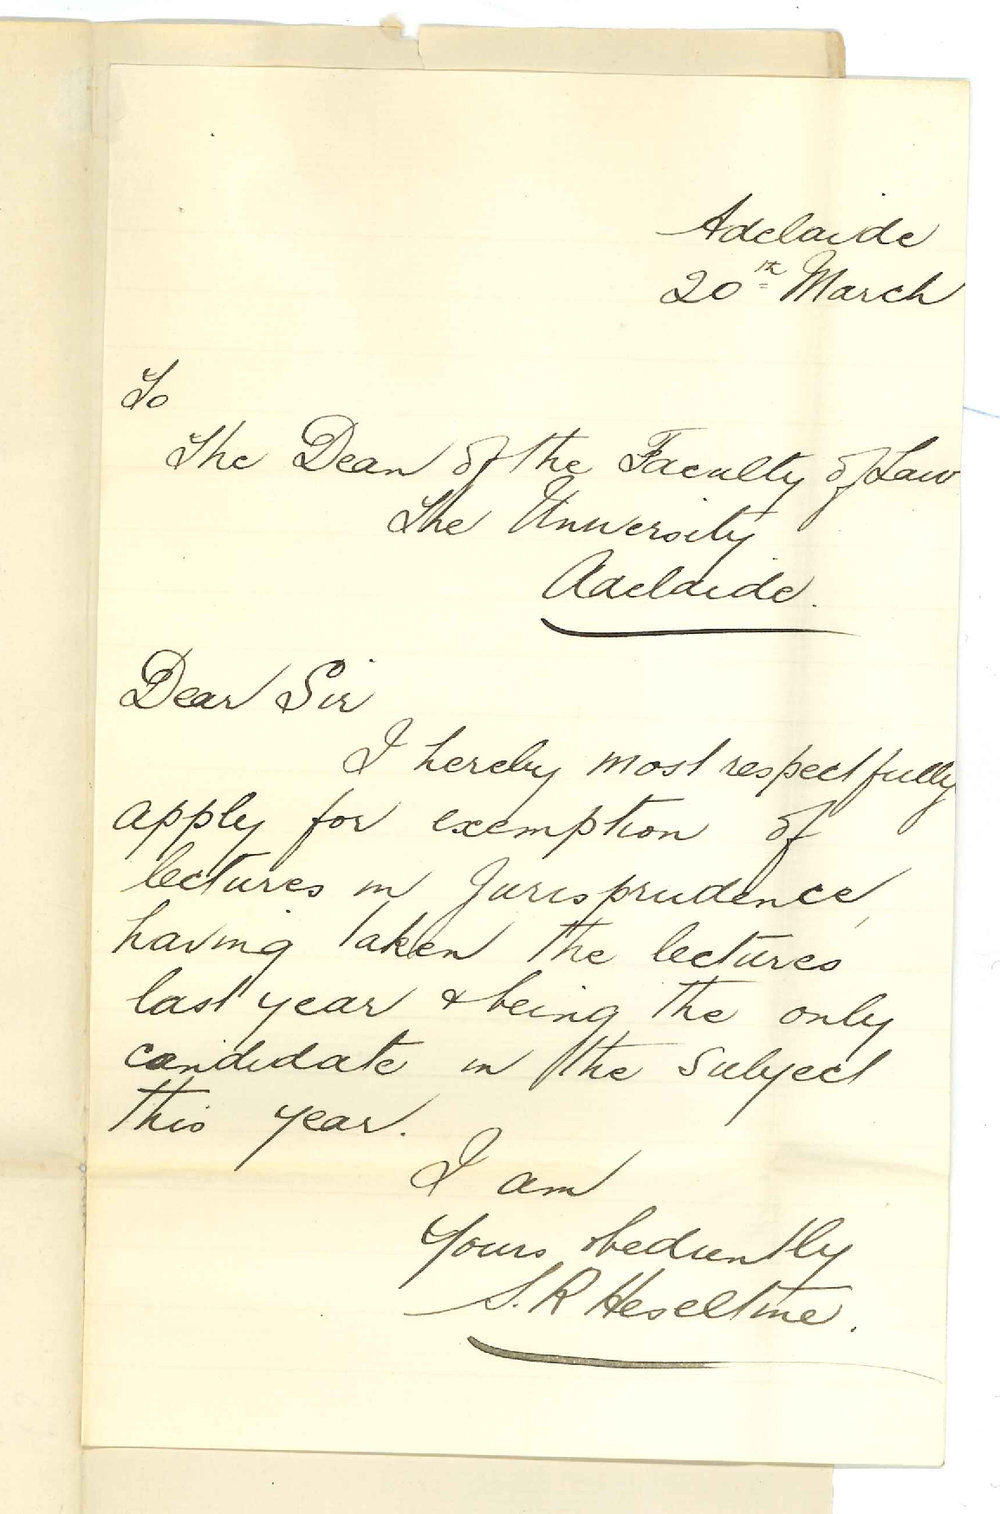 Adelaide
20th March
To
The Dean of the Faculty of Law
The University
Adelaide.
Dear Sir
I hereby most respectfully
apply for exemption of
lectures in Jurisprudence,
having taken the lectures
last year & being the only
candidate in the subject
this year.
I am
Yours obediently
S. R Heseltine.